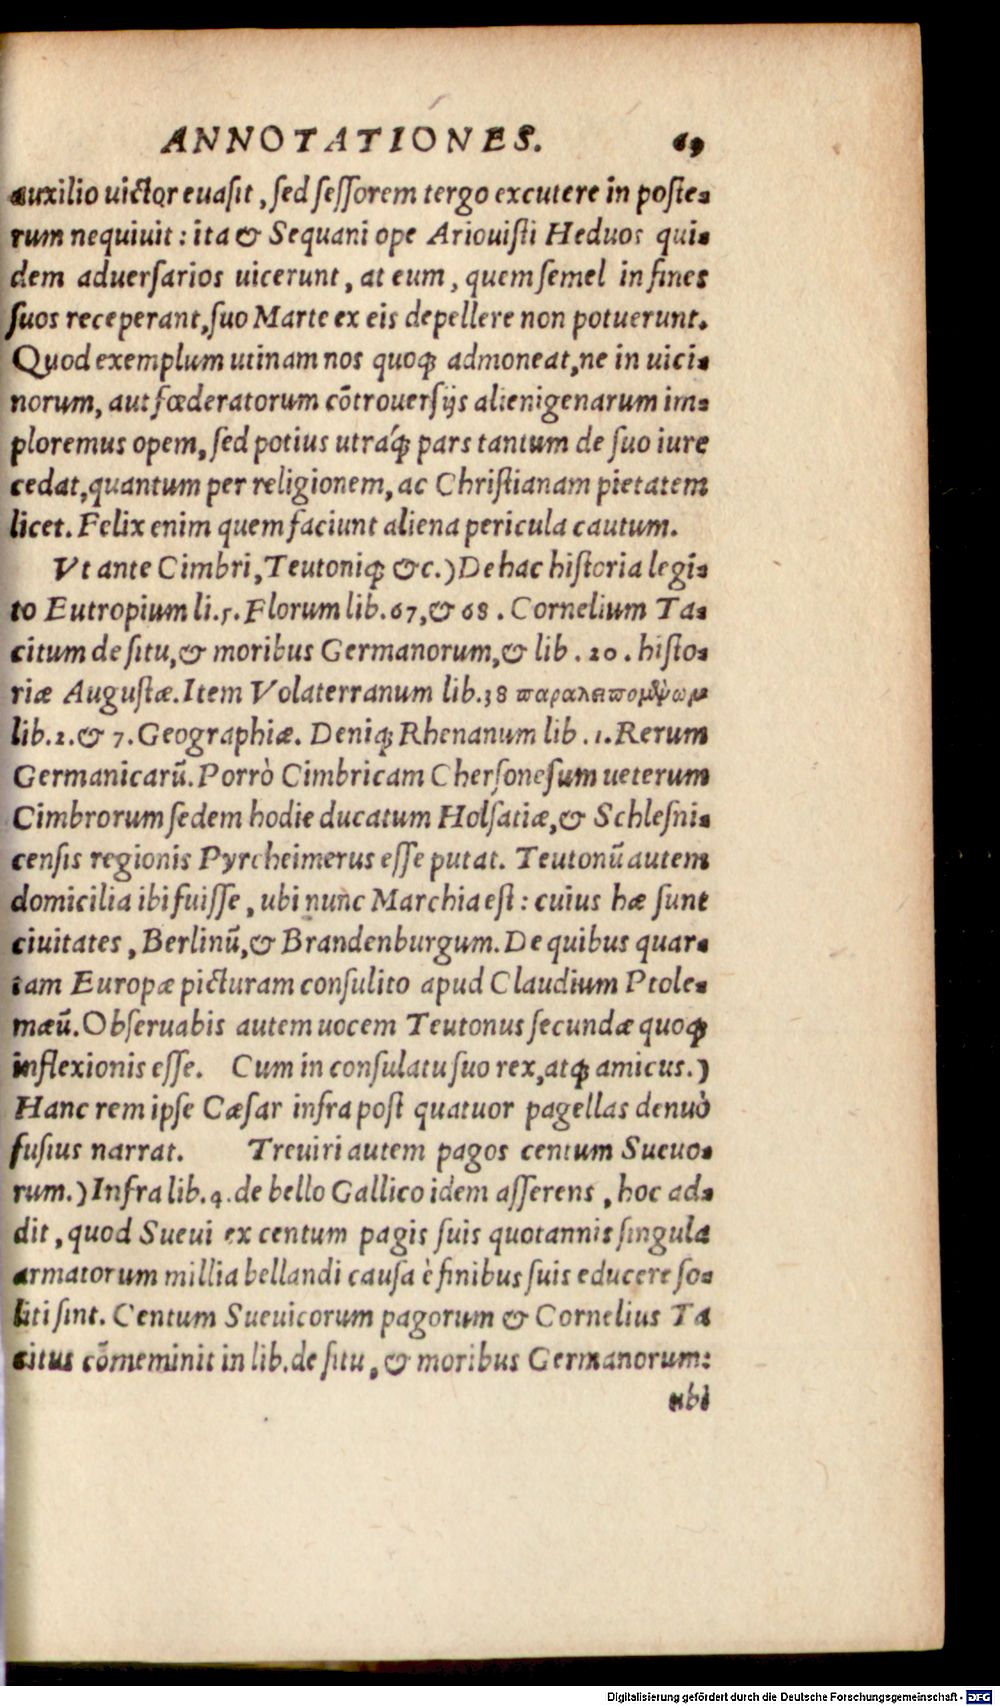 ANNOTATIONES. 69
auxilio uictor euasit, sed sessorem tergo excutere in poste-
rum nequiuit: ita & Sequani ope Ariouisti Heduos qui-
dem aduersarios uicerunt, at eum, quem semel in fines
suos receperant, suo Marte ex eis depellere non potuerunt.
Quod exemplum utinam nos quoq; admoneat, ne in uici-
norum, aut fœderatorum cōtrouersijs alienigenarum im-
ploremus opem, sed potius utráq; pars tantum de suo iure
cedat, quantum per religionem, ac Christianam pietatem
licet. Felix enim quem faciunt aliena pericula cautum.
Vt ante Cimbri, Teutoniq; &c.) De hac historia legi-
to Eutropium li.5. Florum lib.67, & 68. Cornelium Ta-
citum de situ, & moribus Germanorum, & lib. 20. histo-
riæ Augustæ. Item Volaterranum lib.38 παραλειπομένων
lib.2. & 7. Geographiæ. Deniq; Rhenanum lib. 1. Rerum
Germanicarū. Porrò Cimbricam Chersonesum ueterum
Cimbrorum sedem hodie ducatum Holsatiæ, & Schlesni-
censis regionis Pyrcheimerus esse putat. Teutonū autem
domicilia ibi fuisse, ubi nunc Marchia est: cuius hæ sunt
ciuitates, Berlinū, & Brandenburgum. De quibus quar-
tam Europæ picturam consulito apud Claudium Ptole-
mæū. Obseruabis autem uocem Teutonus secundæ quoq;
inflexionis esse. Cum in consulatu suo rex, atq; amicus.)
Hanc rem ipse Cæsar infra post quatuor pagellas denuò
fusius narrat. Treuiri autem pagos centum Sueuo-
rum.) Infra lib.4. de bello Gallico idem asserens, hoc ad-
dit, quod Sueui ex centum pagis suis quotannis singula
armatorum millia bellandi causa è finibus suis educere so-
liti sint. Centum Sueuicorum pagorum & Cornelius Ta
citus cōmeminit in lib. de situ, & moribus Germanorum:
ubi
Digitalisierung gefördert durch die Deutsche Forschungsgemeinschaft - DFG